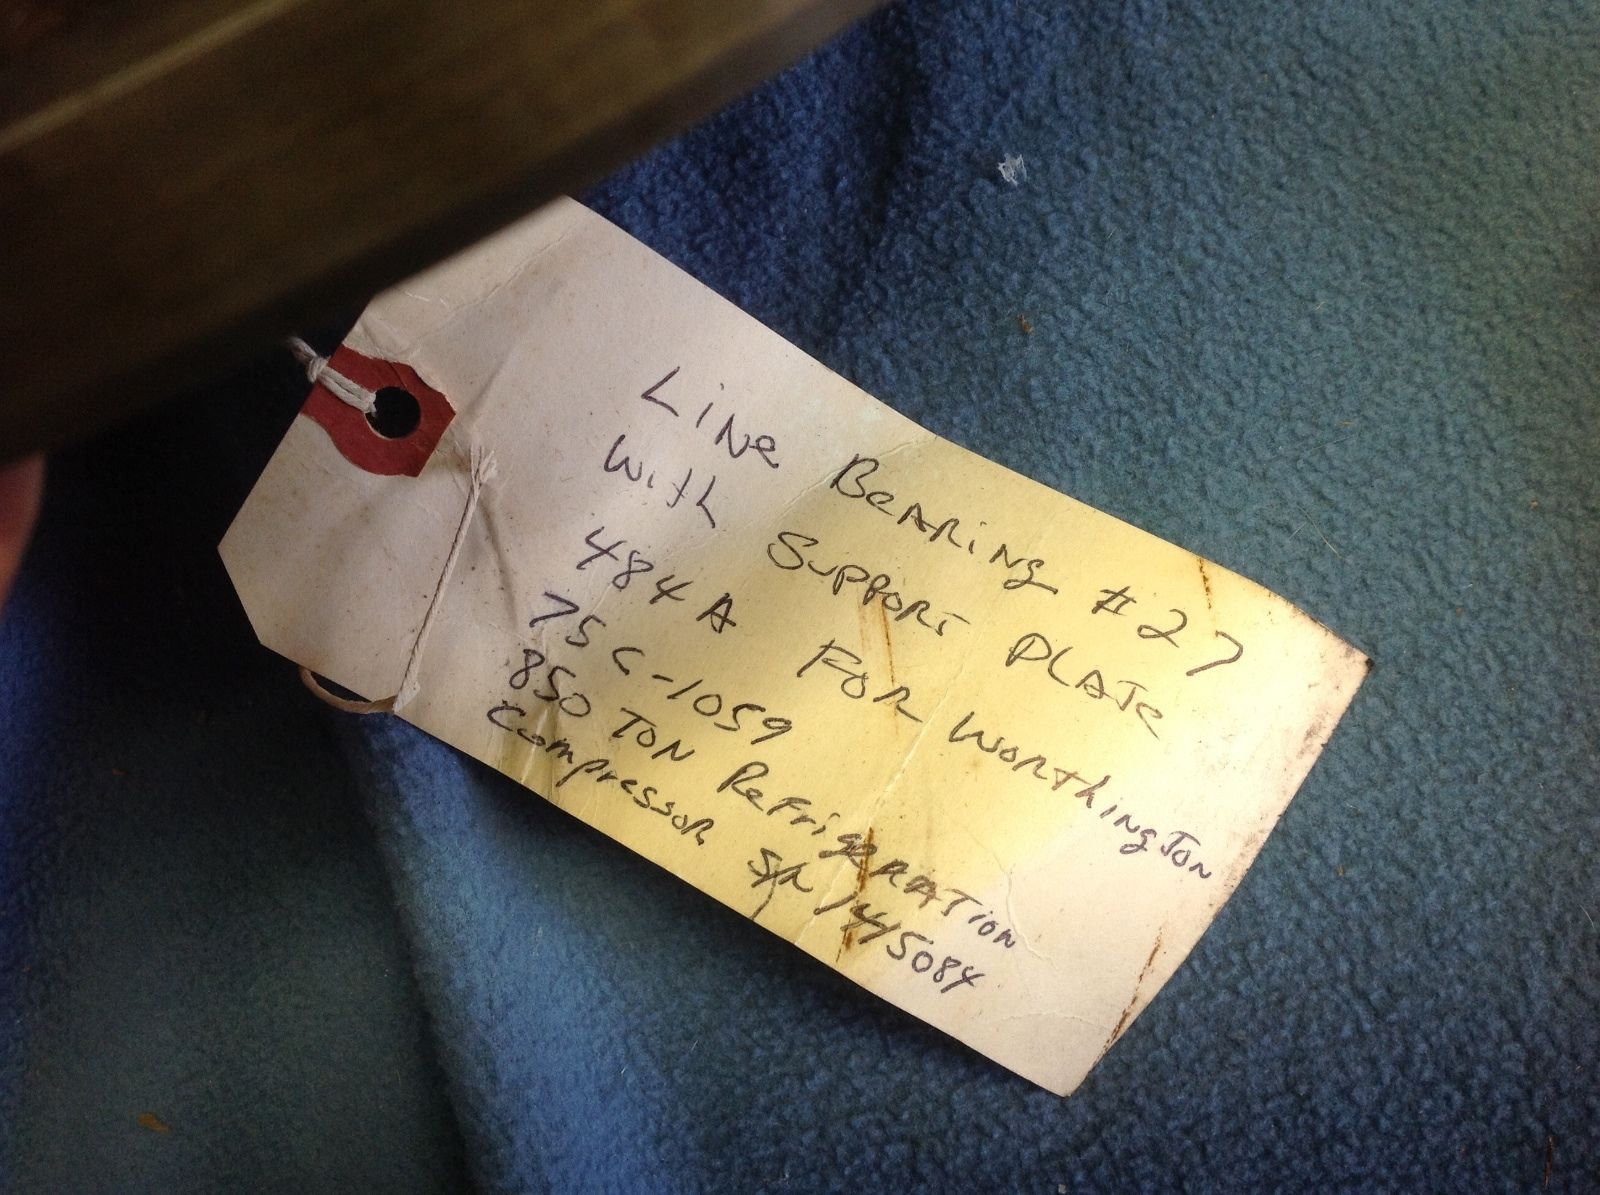 Line Bearing #27
with Support Plate
484 A For Worthington
75C-1059
850 Ton Refrigeration
Compressor S/N 1415084